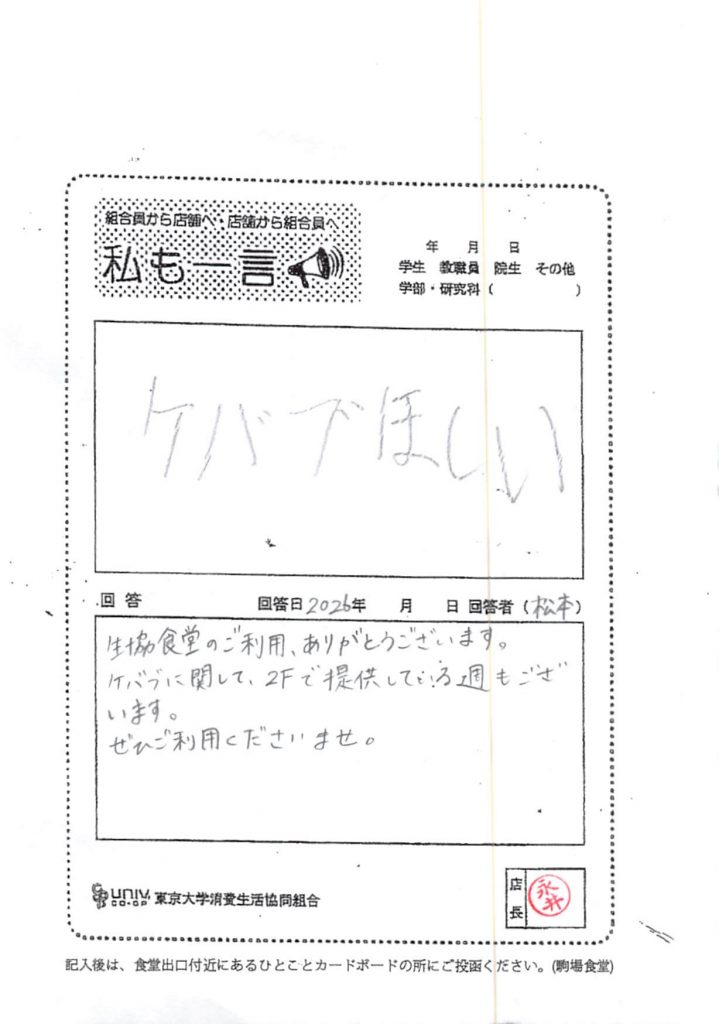 組合員から店舗へ・店舗から組合員へ
私も一言
年 月 日
学生 教職員 院生 その他
学部・研究科( )
ケバブほしい
回答 回答日2026年 月 日 回答者(松本)
生協食堂のご利用、ありがとうございます。
ケバブに関して、2Fで提供している週もござ
います。
ぜひご利用くださいませ。
UNIV. CO-OP 東京大学消費生活協同組合
店長 永井
記入後は、食堂出口付近にあるひとことカードボードの所にご投函ください。(駒場食堂)